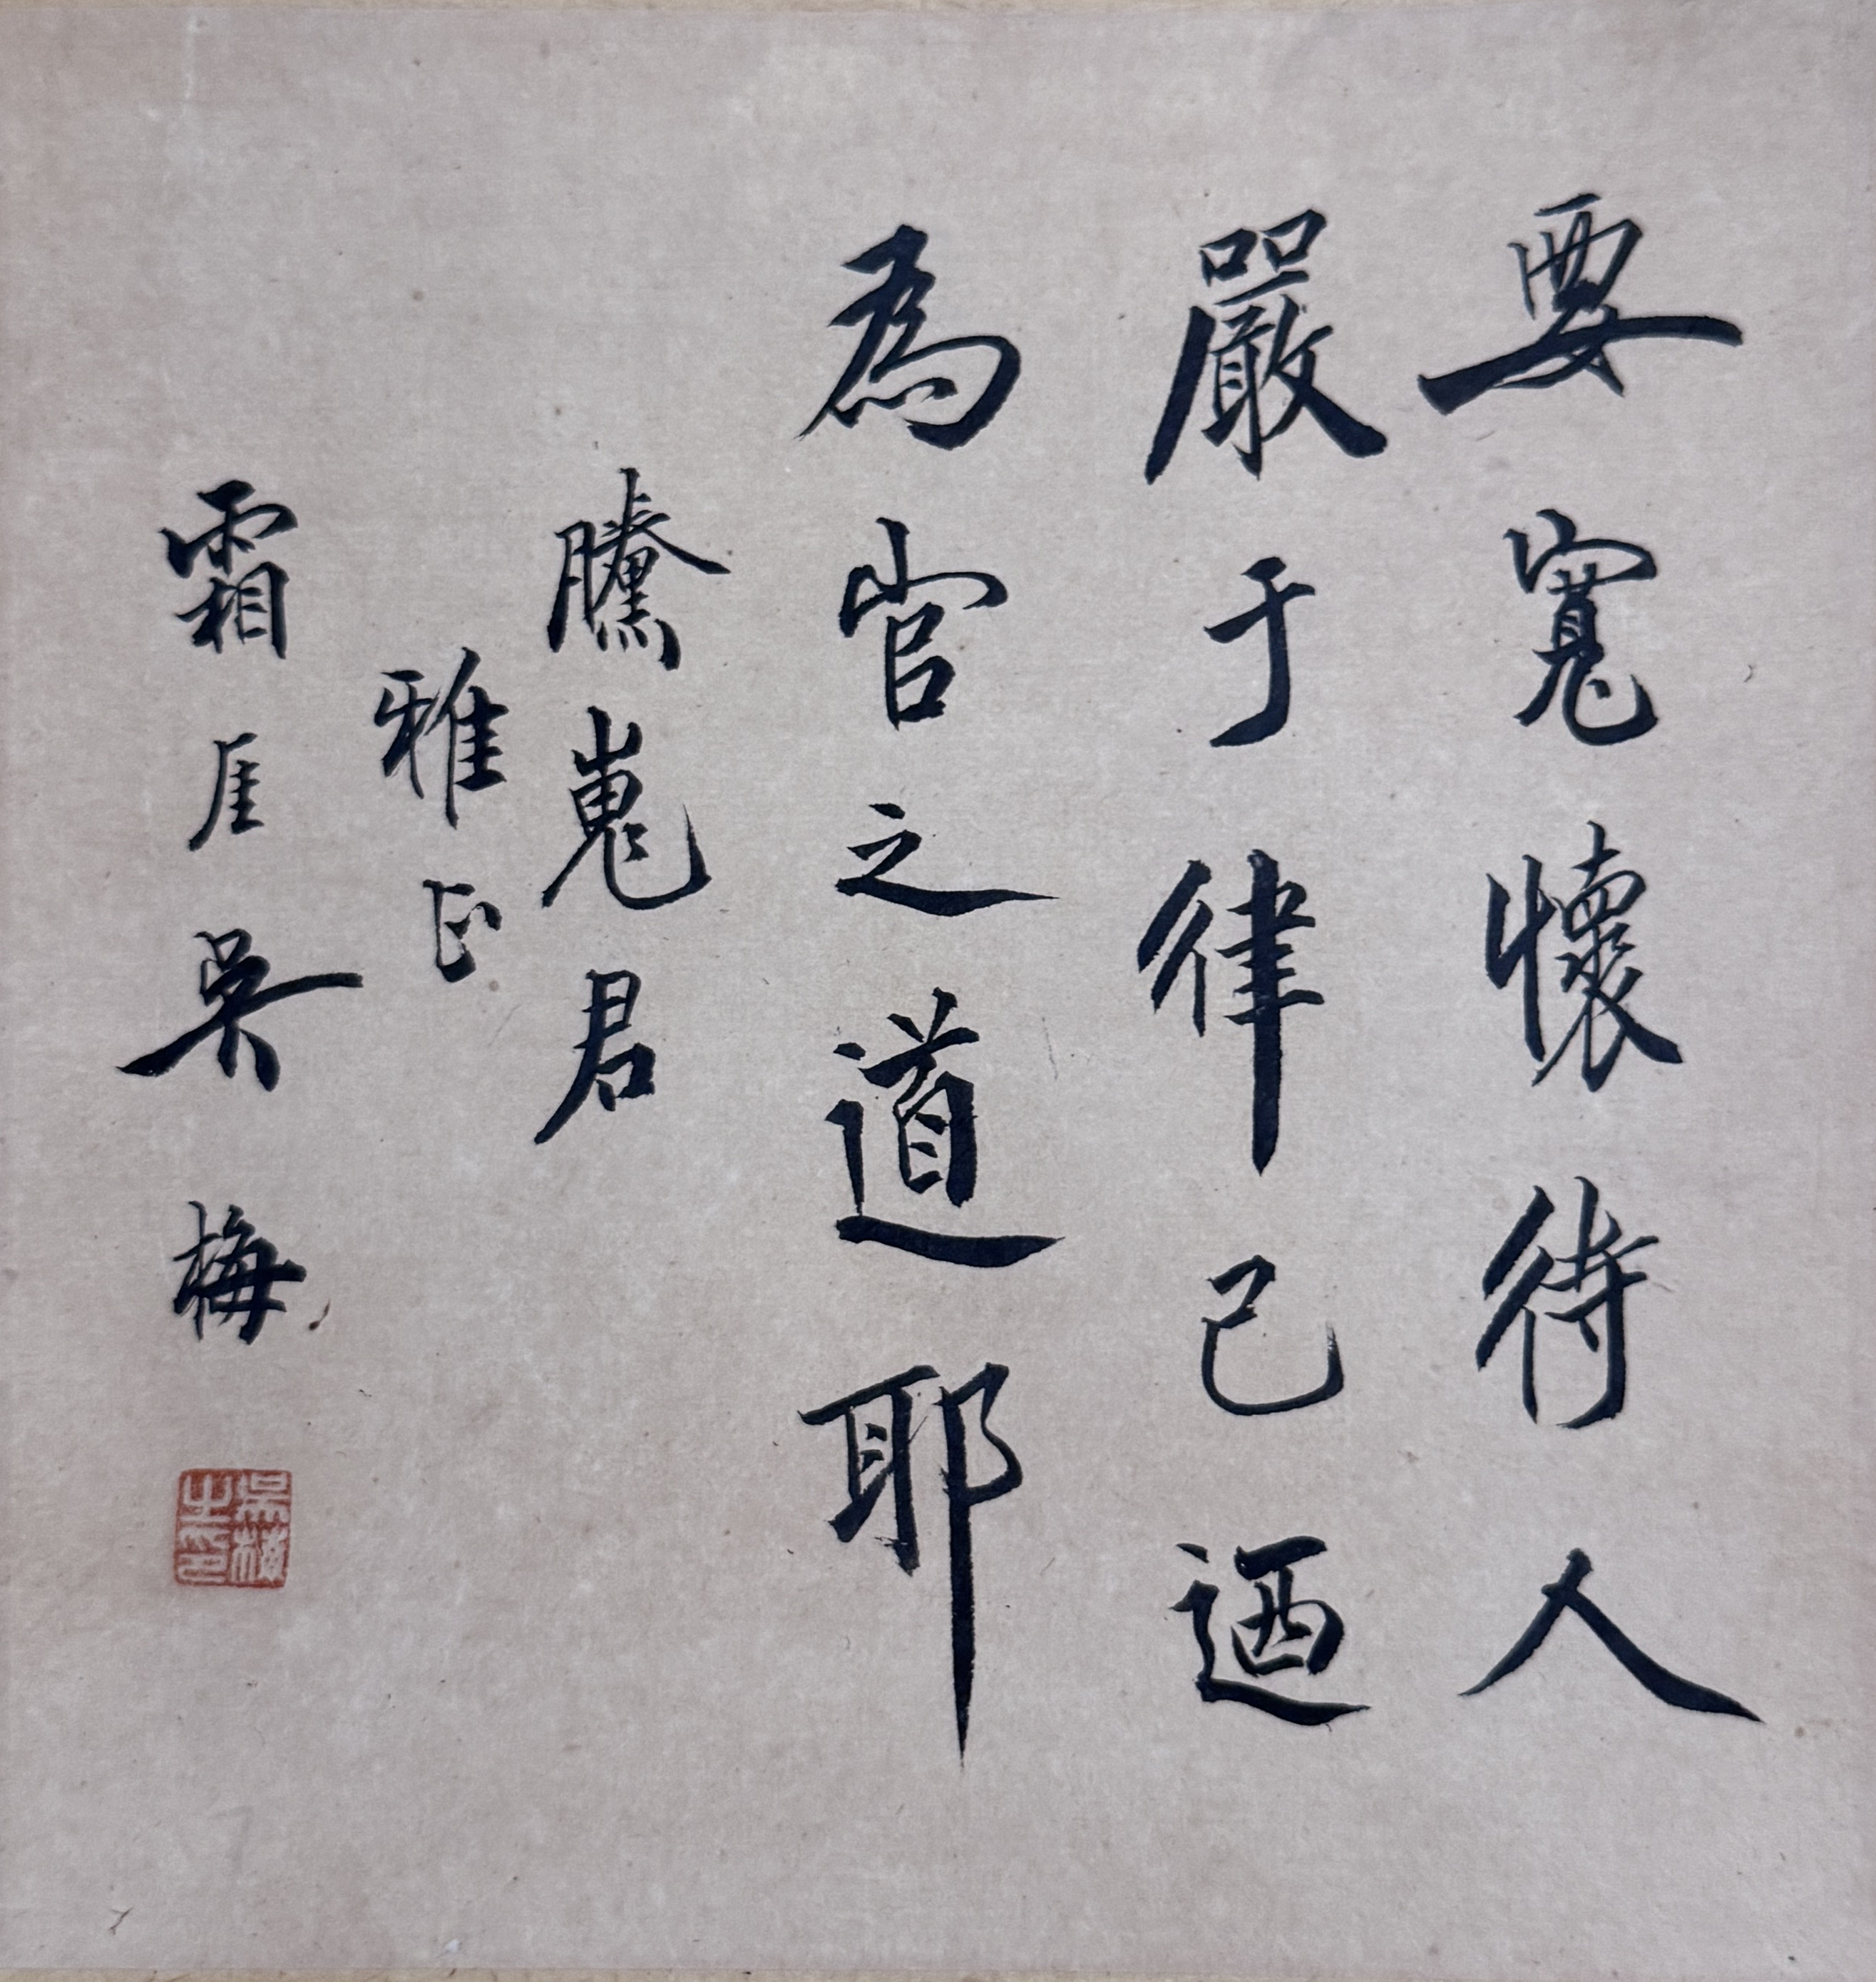 要寬懷待人
嚴于律己迺
為官之道耶
騰嵬君
雅正
霜厓吳梅
吳梅之印